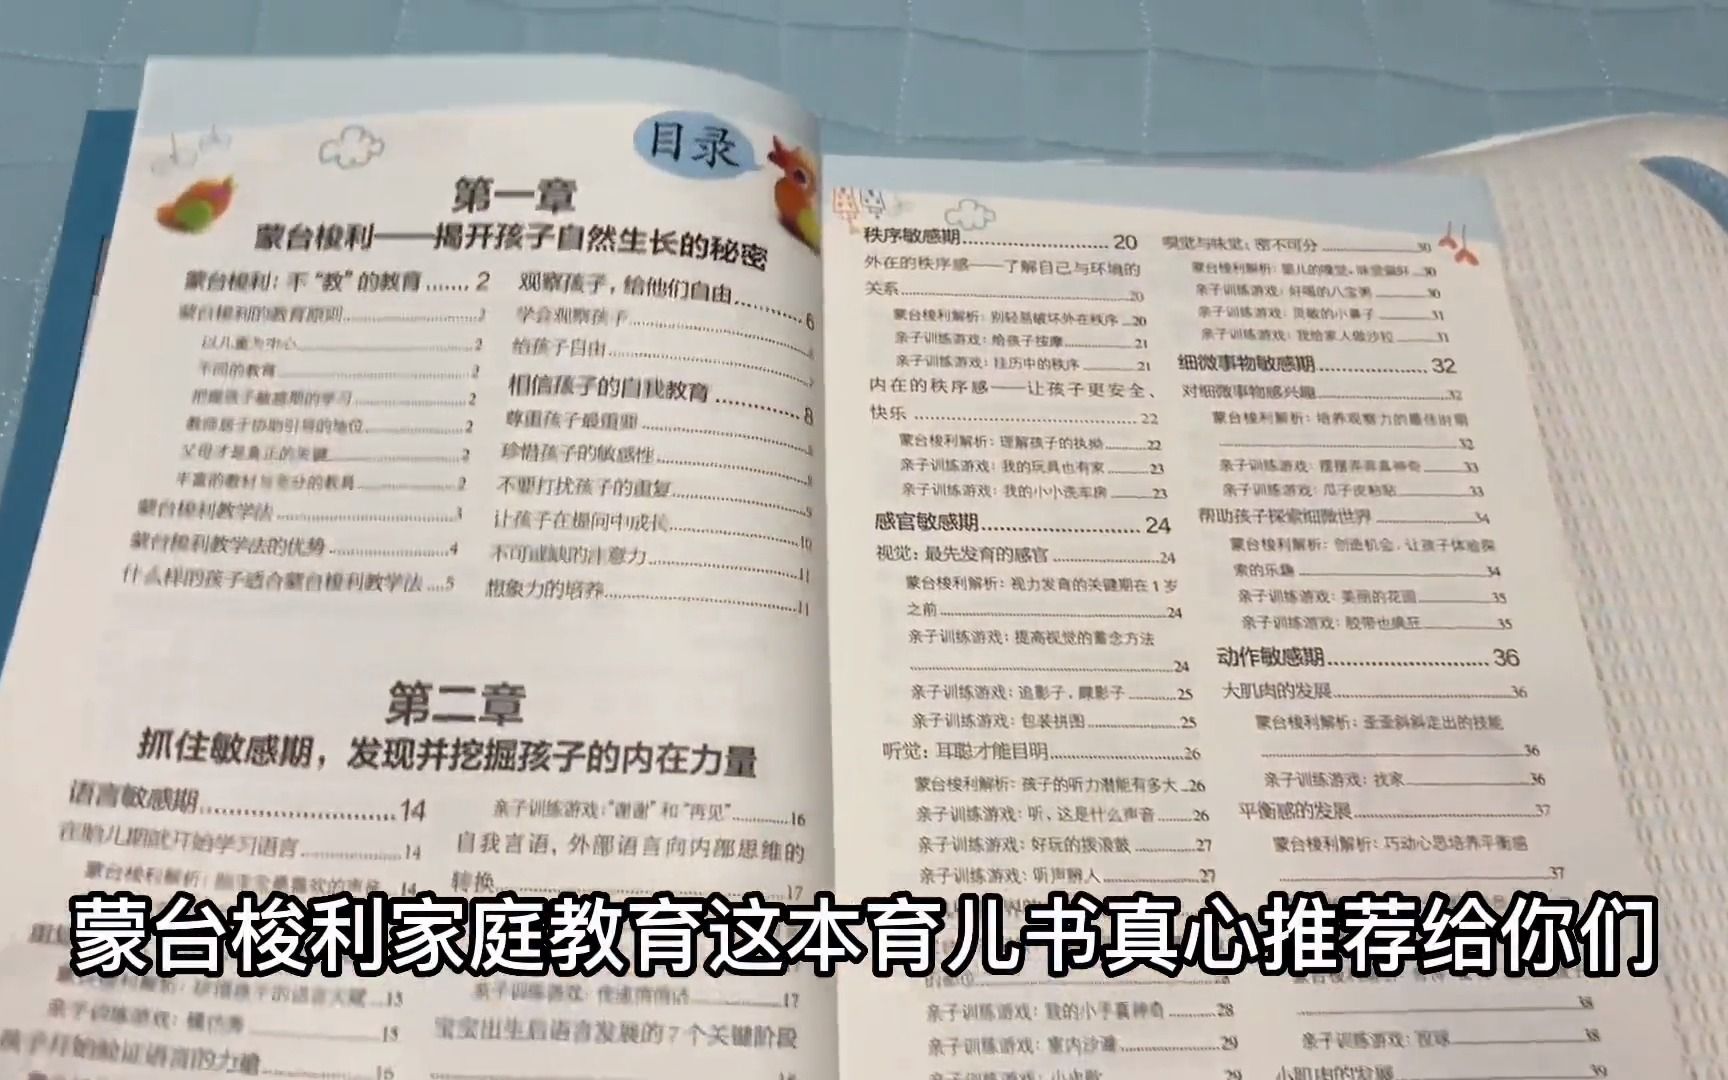 目录
第一章
蒙台梭利——揭开孩子自然生长的秘密
蒙台梭利：不“教”的教育.......2
蒙台梭利的教育原则
以儿童为中心 2
不同的教育 2
把握孩子敏感期的学习 2
教师居于协助引导的地位 2
父母才是真正的关键 2
丰富的教材与充分的教具 2
蒙台梭利教学法 3
蒙台梭利教学法的优势 4
什么样的孩子适合蒙台梭利教学法....5
观察孩子，给他们自由 6
学会观察孩子
给孩子自由
相信孩子的自我教育 8
尊重孩子最重要
珍惜孩子的敏感性
不要打扰孩子的重复 9
让孩子在提问中成长 10
不可或缺的注意力 11
想象力的培养 11
第二章
抓住敏感期，发现并挖掘孩子的内在力量
语言敏感期 14
在胎儿期就开始学习语言 14
亲子训练游戏：“谢谢”和“再见” 16
自我言语，外部语言向内部思维的
转换 17
亲子训练游戏：传递悄悄话 17
宝宝出生后语言发展的7个关键阶段
秩序敏感期 20
外在的秩序感——了解自己与环境的
关系 20
蒙台梭利解析：别轻易破坏外在秩序 20
亲子训练游戏：给孩子按摩 21
亲子训练游戏：挂历中的秩序 21
内在的秩序感——让孩子更安全、
快乐 22
蒙台梭利解析：理解孩子的执拗 22
亲子训练游戏：我的玩具也有家 23
亲子训练游戏：我的小小洗车房 23
感官敏感期 24
视觉：最先发育的感官 24
蒙台梭利解析：视力发育的关键期在1岁
之前 24
亲子训练游戏：提高视觉的蓄念方法
24
亲子训练游戏：追影子，踩影子 25
亲子训练游戏：包装拼图 25
听觉：耳聪才能目明 26
蒙台梭利解析：孩子的听力潜能有多大 26
亲子训练游戏：听，这是什么声音 26
亲子训练游戏：好玩的拨浪鼓 27
亲子训练游戏：听声辨人 27
亲子训练游戏：我的小手真神奇 28
亲子训练游戏：室内沙滩 29
嗅觉与味觉：密不可分 30
蒙台梭利解析：婴儿的嗅觉、味觉偏好 30
亲子训练游戏：好喝的八宝粥 30
亲子训练游戏：灵敏的小鼻子 31
亲子训练游戏：我给家人做沙拉 31
细微事物敏感期 32
对细微事物感兴趣 32
蒙台梭利解析：培养观察力的最佳时期
32
亲子训练游戏：摆摆弄弄真神奇 33
亲子训练游戏：瓜子皮粘贴 33
帮助孩子探索细微世界 34
蒙台梭利解析：创造机会，让孩子体验探
索的乐趣 34
亲子训练游戏：美丽的花园 35
亲子训练游戏：胶带也疯狂 35
动作敏感期 36
大肌肉的发展 36
蒙台梭利解析：歪歪斜斜走出的技能
36
亲子训练游戏：找家 36
平衡感的发展 37
蒙台梭利解析：巧动心思培养平衡感
37
38
38
小肌肉的发展 39
蒙台梭利家庭教育这本育儿书真心推荐给你们